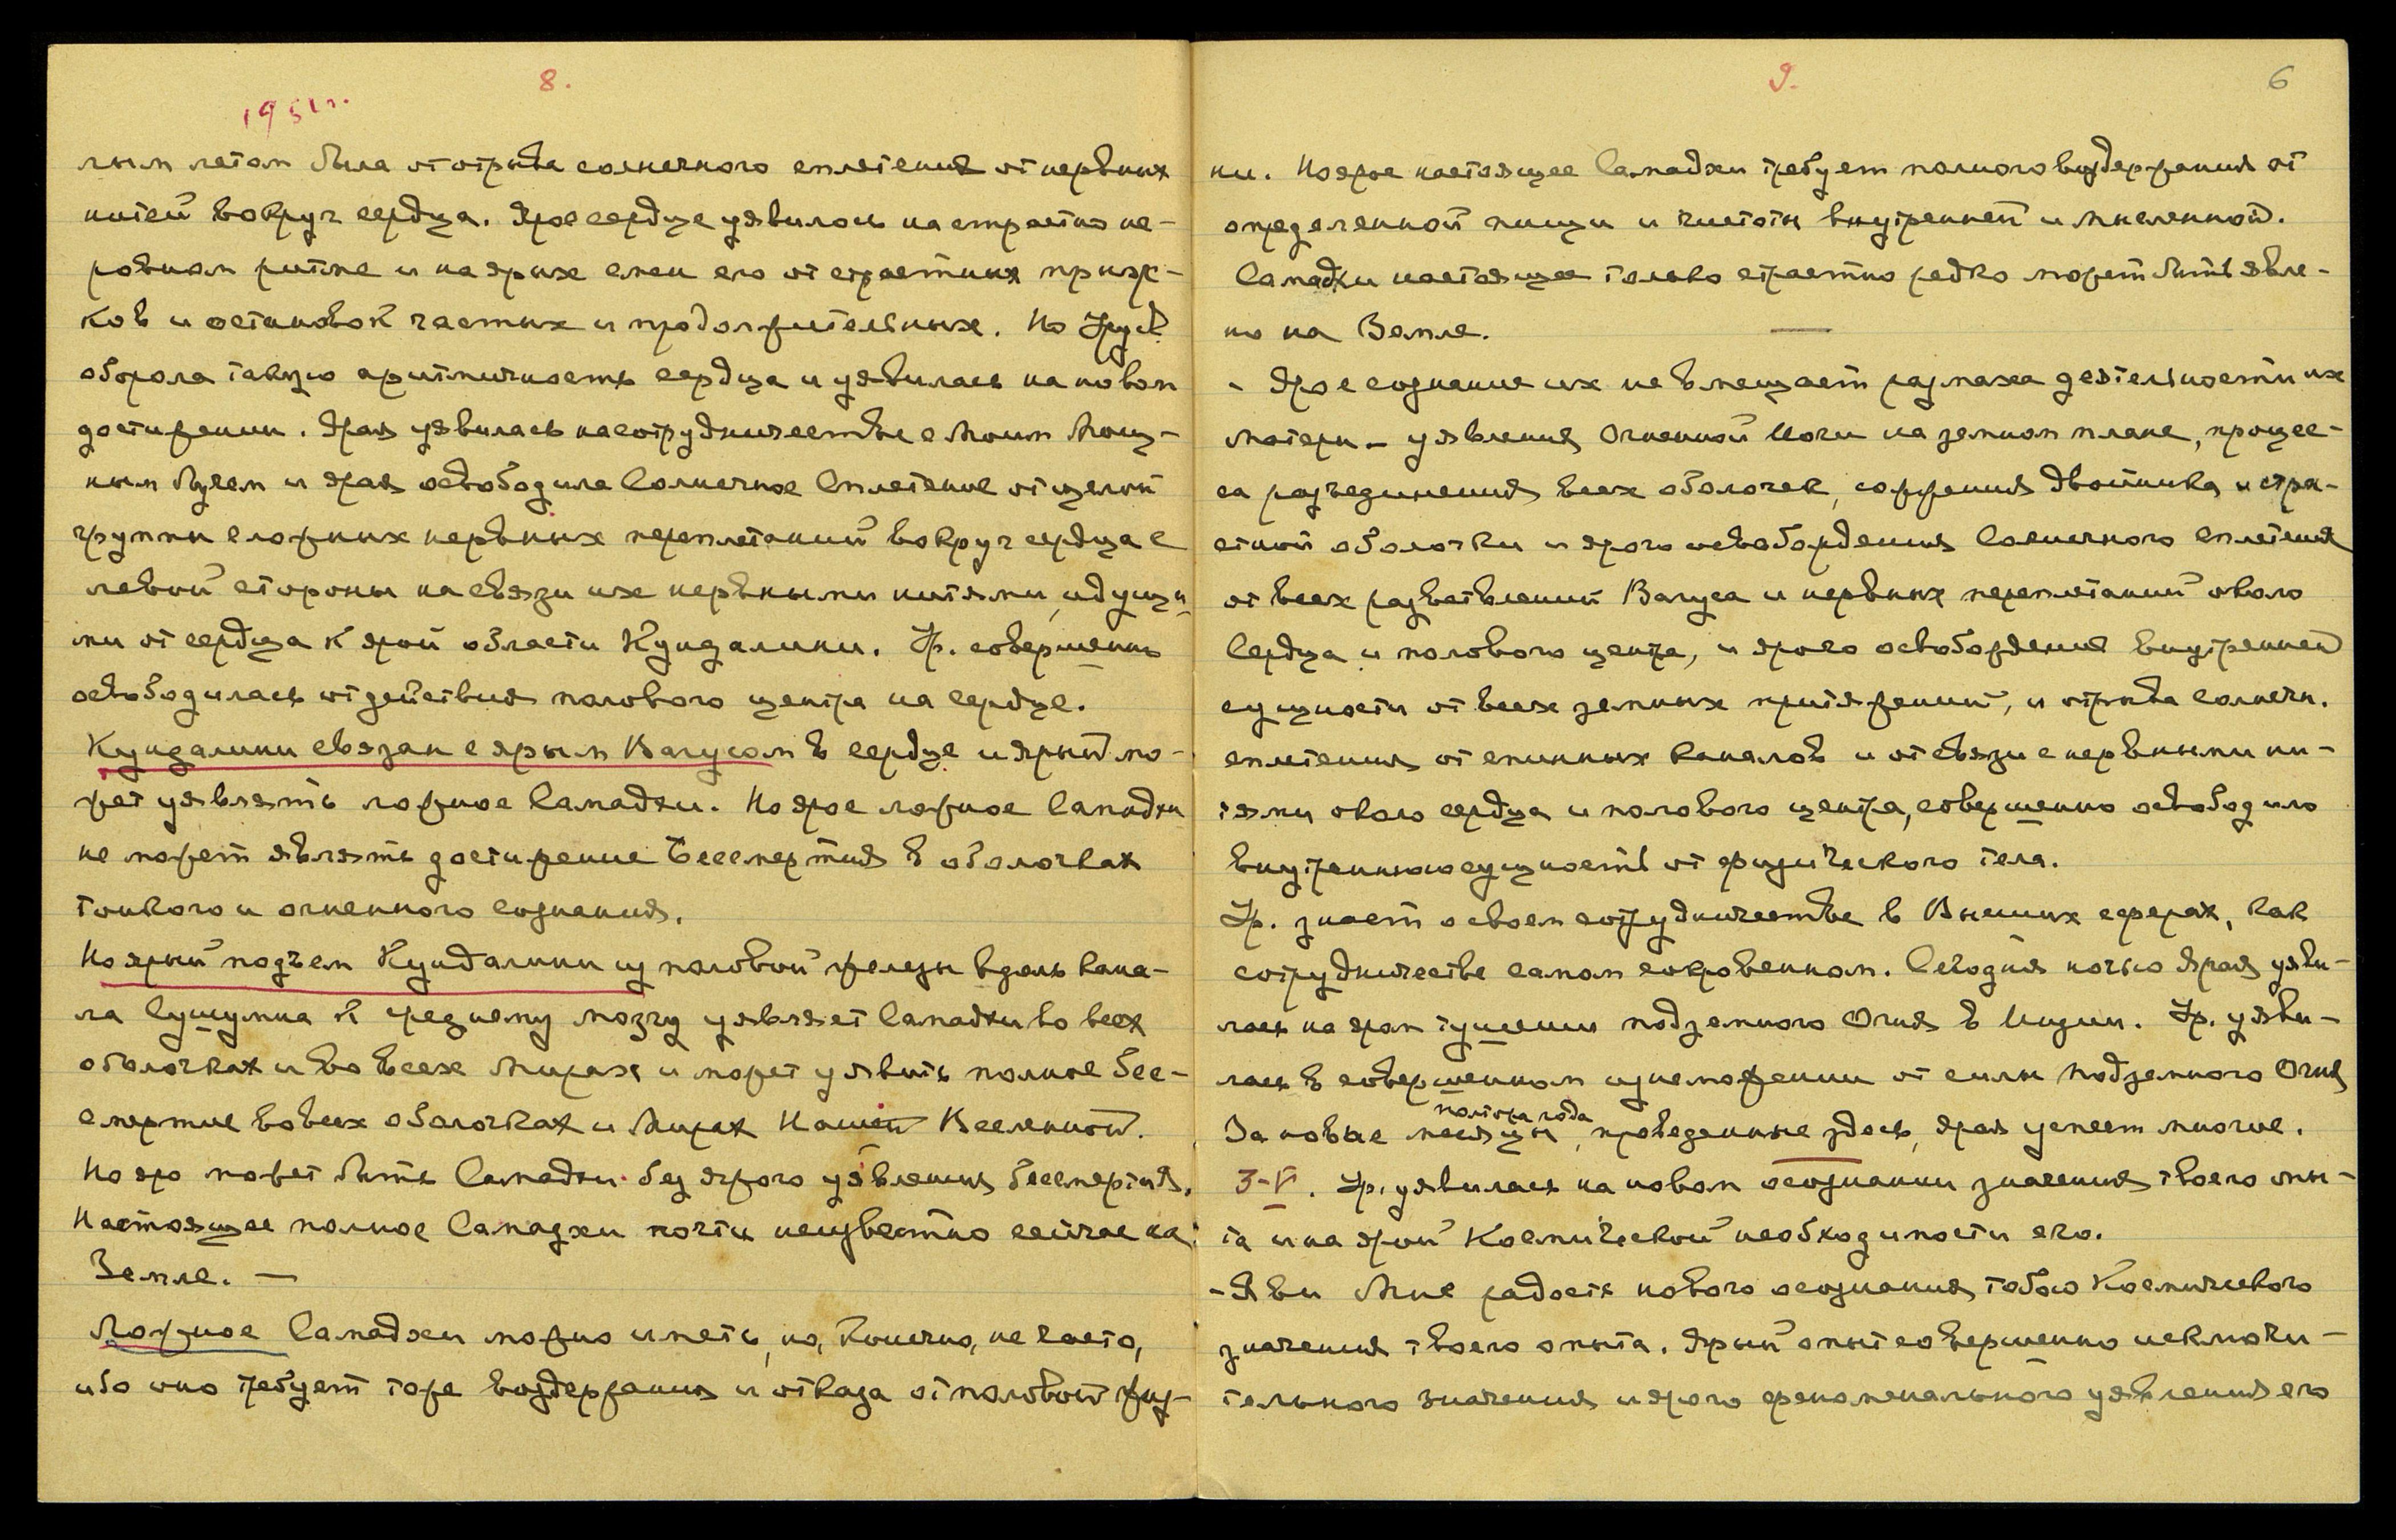 8.
1951г.
лым летом была от отрыва солнечного сплетения от нервных
нитей вокруг сердца. Ярое сердце уявилось на страстно не-
ровном ритме и на ярых смен его от страстных прыж-
ков и остановок частых и продолжительных. Но Урус.
оборола такую аритмичность сердца и уявилась на новом
достижении. Ярая уявилась на сотрудничестве с Моим Мощ-
ным Лучем и ярая освободила Солнечное Сплетение от целой
группы сложных нервных переплетаний вокруг сердца с
левой стороны на связи их нервными нитями, идущи-
ми от сердца к ярой области Кундалини. Ур. совершенно
освободилась от действия полового центра на сердце.
Кундалини связан с ярым Вагусом в сердце и ярый мо-
жет уявлять ложное Самадхи. Но ярое ложное Самадхи
не может являть достижение Бессмертия в оболочках
тонкого и огненного сознания.
Но ярый подъем Кундалини из половой железы вдоль кана-
ла Сушумна к среднему мозгу уявляет Самадхи во всех
оболочках и во всех Мирах и может уявить полное бес-
смертие во всех оболочках и Мирах Нашей Вселенной.
Но яро может быть Самадхи без ярого уявления бессмертия.
Настоящее полное Самадхи почти неизвестно сейчас на
Земле. —
Ложное Самадхи можно иметь, но, конечно, не часто,
ибо оно требует тоже воздержания и отказа от половой жиз-
9.
6
ни. Но ярое настоящее Самадхи требует полного воздержания от
определенной пищи и чистоты внутренней и мысленной.
Самадхи настоящее только страстно редко может быть явле-
но на Земле. —
- Ярое сознание их не вмещает размаха деятельности их
матери - уявления Огненной Йоги на земном плане, процес-
са разъединения всех оболочек, сожжения двойника и стра-
стной оболочки и ярого освобождения Солнечного сплетения
от всех разветвлений Вагуса и нервных переплетаний около
Сердца и полового центра, и ярого освобождения внутренней
сущности от всех земных притяжений, и отрыва солнечн.
сплетения от спинных каналов и от связи с нервными ни-
тями около сердца и полового центра, совершенно освободило
внутреннюю сущность от физического тела.
Ур. знает о своем сотрудничестве в Высших сферах, как
сотрудничестве самом сокровенном. Сегодня ночью Ярая уяви-
лась на яром тушении подземного Огня в Индии. Ур. уяви-
лась в совершенном изнеможении от силы подземного Огня
полтора года
За новые месяцы, проведенные здесь, ярая успеет многое.
3-V. Ур. уявилась на новом осознании значения твоего опы-
та и на ярой Космической необходимости его.
- Яви Мне радость нового осознания тобою Космического
значения твоего опыта. Ярый опыт совершенно исключи-
тельного значения и ярого феноменального уявления его